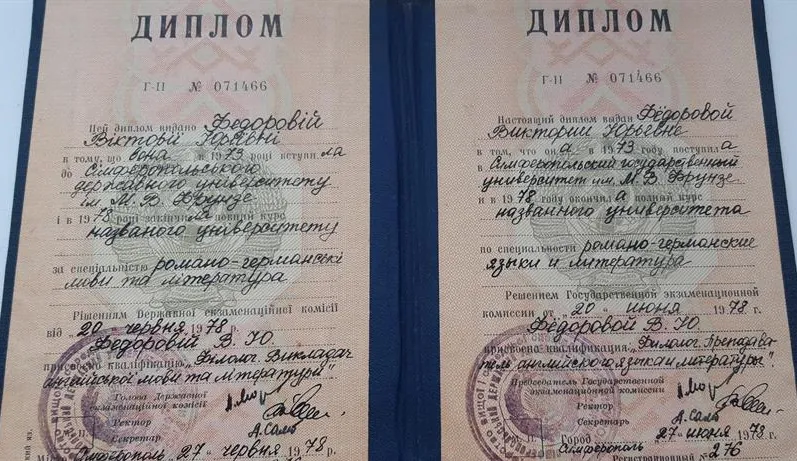 ДИПЛОМ
Г-II № 071466
Цей диплом видано Федоровій
Вікторії Юріївні
в тому, що вона в 1973 році вступила
до Сімферопольського
державного університету
ім. М. В. Фрунзе
і в 1978 році закінчила повний курс
названого університету
за спеціальністю романо-германські
мови та література
Рішенням Державної екзаменаційної комісії
від „20“ червня 1978 р.
Федоровій В. Ю.
присвоєно кваліфікацію „Філолог. Викладач
англійської мови та літератури“
Голова Державної
екзаменаційної комісії
Ректор
Секретар
Сімферополь „27“ червня 1978
ДИПЛОМ
Г-II № 071466
Настоящий диплом выдан Фёдоровой
Виктории Юрьевне
в том, что она в 1973 году поступила
в Симферопольский государственный
университет им. М. В. Фрунзе
и в 1978 году окончила полный курс
названного университета
по специальности романо-германские
языки и литература
Решением Государственной экзаменационной
комиссии от „20“ июня 1978 г.
Фёдоровой В. Ю.
присвоена квалификация „Филолог. Преподава
тель английского языка и литературы“
Председатель Государственной
экзаменационной комиссии
Ректор
Секретарь
Город
Симферополь „27“ июня 1978
Регистрационный № 276